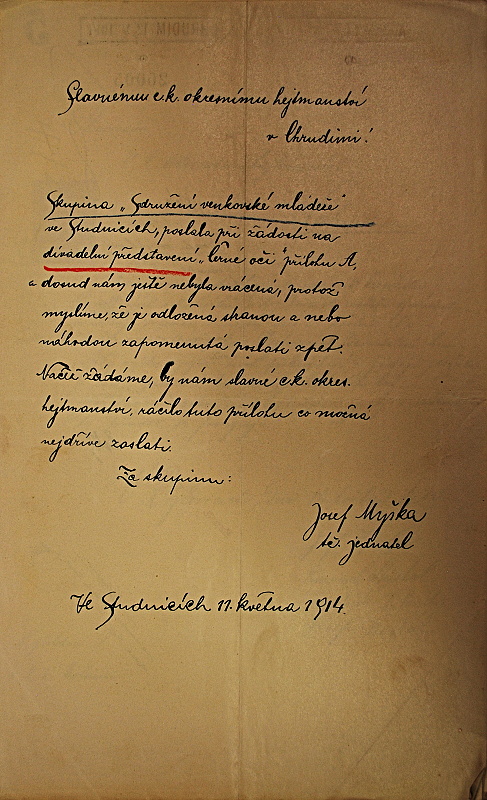 Slavnému c.k. okresnímu hejtmanství
v Chrudimi!
Skupina „Sdružení venkovské mládeže"
ve Studnicích, poslala při žádosti na
divadelní představení „Černé oči" přílohu A,
a dosud nám ještě nebyla vrácená, protož
myslíme, že je odložená stranou a nebo
náhodou zapomenutá poslati zpět.
žádáme, by nám slavné c.k. okres.
hejtmanství, ráčilo tuto přílohu co možná
nejdříve zaslati.
Za skupinu:
Josef Myška
tč. jednatel
Ve Studnicích 11. května 1914.